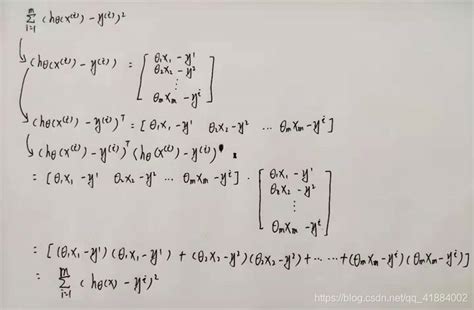 ∑_{i=1}^{m} (hθ(x^{(i)}) - y^{(i)})²
(hθ(x^{(i)}) - y^{(i)}) = [ θ₁x₁ - y¹
θ₂x₂ - y²
⋮
θₘxₘ - yⁱ ]
(hθ(x^{(i)}) - y^{(i)})ᵀ = [ θ₁x₁ - y¹ θ₂x₂ - y² … θₘxₘ - yⁱ ]
(hθ(x^{(i)}) - y^{(i)})ᵀ (hθ(x^{(i)}) - y^{(i)})
= [ θ₁x₁ - y¹ θ₂x₂ - y² … θₘxₘ - yⁱ ] · [ θ₁x₁ - y¹
θ₂x₂ - y²
⋮
θₘxₘ - yⁱ ]
= [ (θ₁x₁ - y¹)(θ₁x₁ - y¹) + (θ₂x₂ - y²)(θ₂x₂ - y²) + … + (θₘxₘ - yⁱ)(θₘxₘ - yⁱ) ]
= ∑_{i=1}^{m} (hθ(x) - yⁱ)²
https://blog.csdn.net/qq_41884002